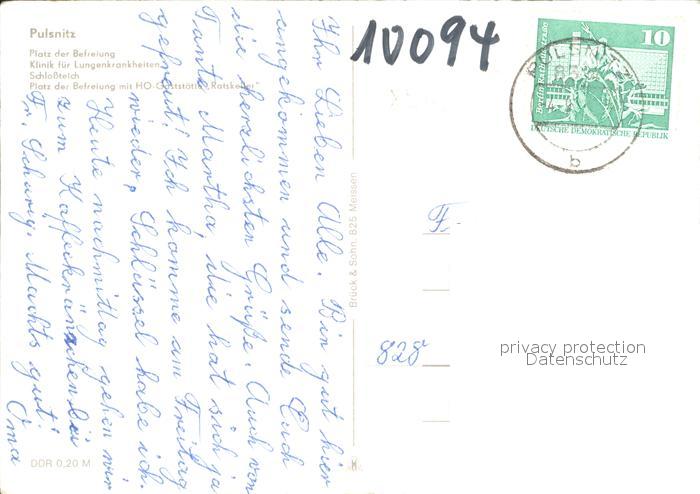 Pulsnitz
Platz der Befreiung
Klinik für Lungenkrankheiten
Schloßteich
Platz der Befreiung mit HO-Gaststätte "Ratskeller"
Ihr Lieben Alle. Bin gut hier
angekommen und sende Euch
die herzlichsten Grüße. Auch von
Tante Martha, die hat sich ja
gefreut! Ich komme am Freitag
wieder, Schlüssel habe ich.
Heute nachmittag gehen wir
zum Kaffeekränzchen bei
Fr. Schurig. Machts gut!
Oma
DDR 0,20 M
Brück & Sohn, 825 Meissen
10094
Berlin Rathausstraße
10
DEUTSCHE DEMOKRATISCHE REPUBLIK
PULSNITZ
b
F
828
privacy protection
Datenschutz